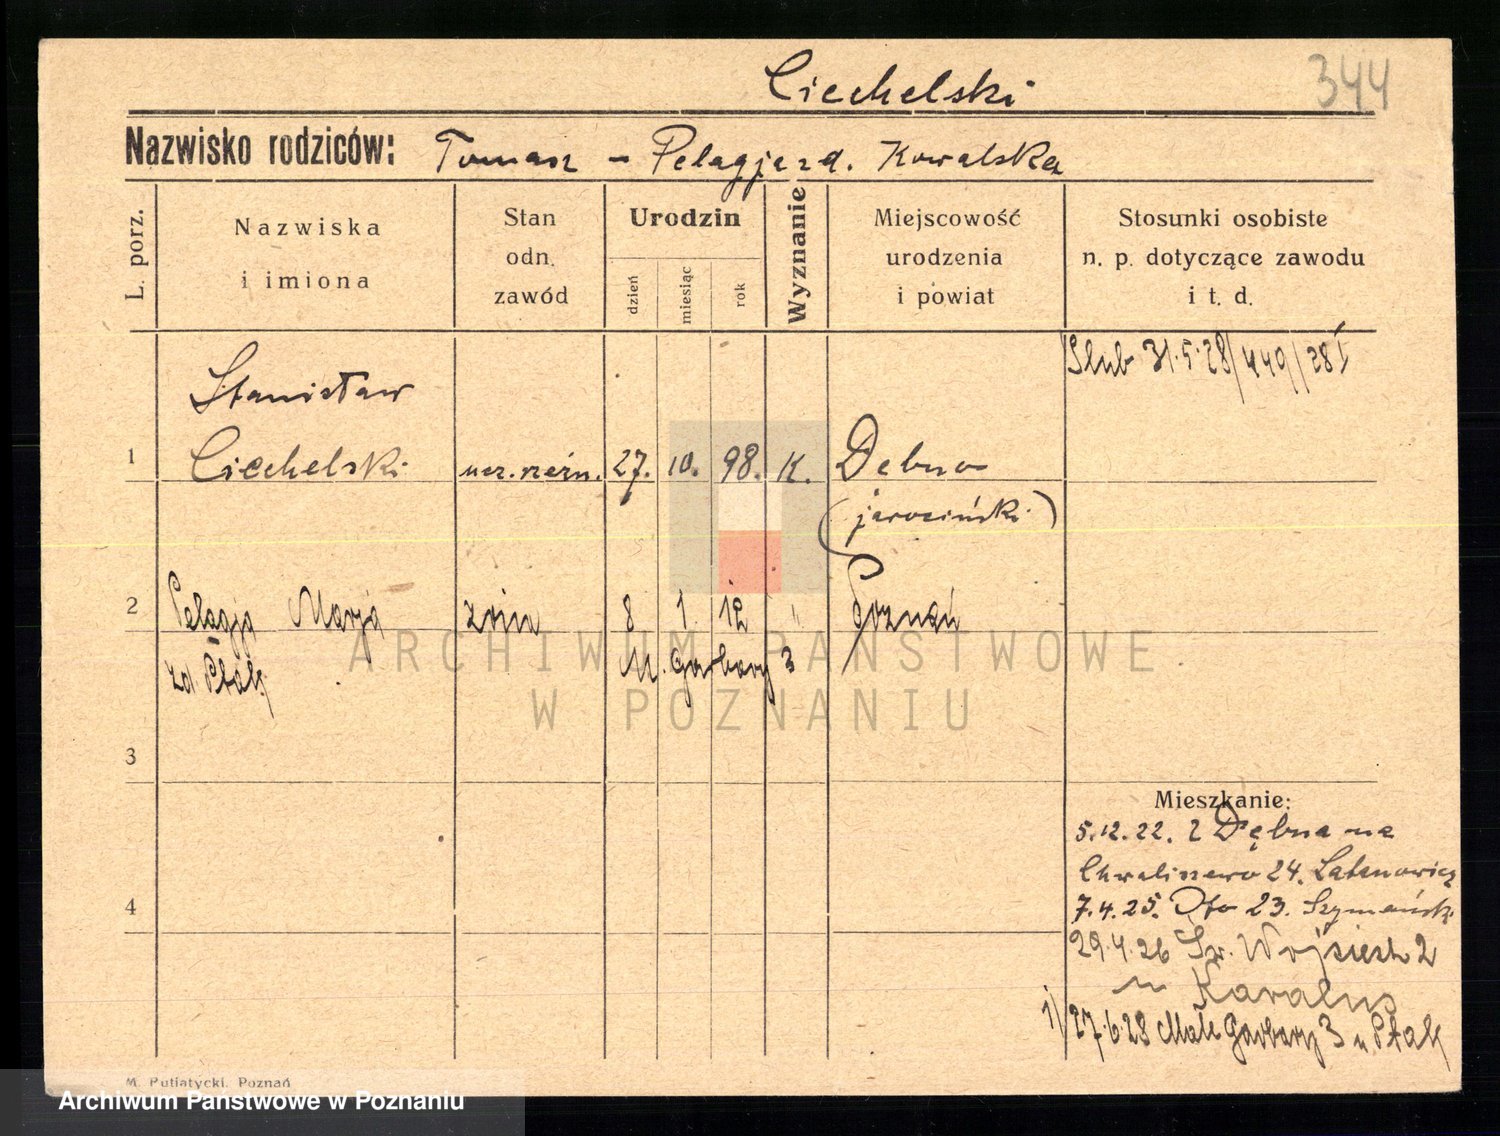 344
Ciechelski
Nazwisko rodziców: Tomasz – Pelagja zd. Kowalska
L. porz.
Nazwiska
i imiona
Stan
odn.
zawód
Urodzin
dzień
miesiąc
rok
Wyznanie
Miejscowość
urodzenia
i powiat
Stosunki osobiste
n. p. dotyczące zawodu
i t. d.
Ślub 31.5.28/449/28 I
Stanisław
1 Ciechelski ucz. rzeźn. 27. 10. 98. K. Dębno
(jarociński)
2 Pelagja Marja żona 8 1 12 " Poznań
zd Ptak M. Garbary 3
3
4
Mieszkanie:
5.12.22. z Dębna na
Chwaliszewo 24. Latanowicz
7.4.25. Dto 23. Szymańsk.
29.4.26 Św. Wojciech 2
u Karalus
1/ 27.6.28 Małe Garbary 3 u Ptak
M. Putiatycki. Poznań
ARCHIWUM PAŃSTWOWE
W POZNANIU
Archiwum Państwowe w Poznaniu